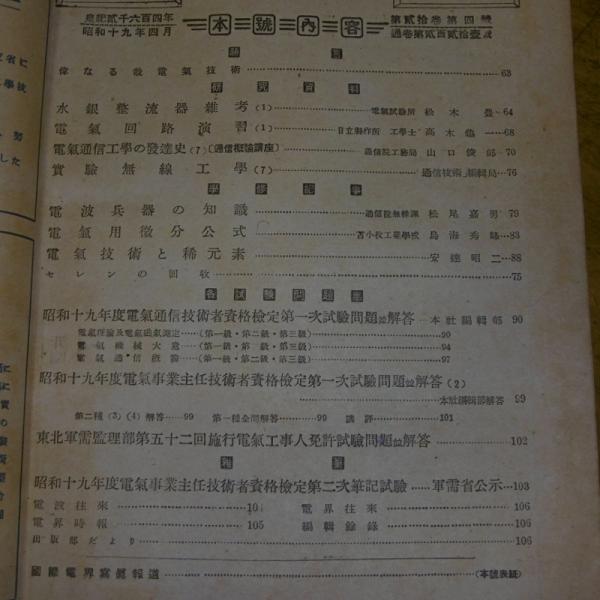 皇紀貳千六百四年
昭和十九年四月
本號內容
第貳拾卷第四號
通卷第貳百貳拾壹號
偉なる哉電氣技術 63
研究資料
水銀整流器雜考(1) 電氣試驗所 松木 64
電氣回路演習(1) 日立製作所 工學士 高木 一 68
電氣通信工學の發達史(7)(通信概論講座) 遞信院工務局 山口 郎 70
實驗無線工學(7) 通信技術 編輯局 76
學修記事
電波兵器の知識 遞信院無線課 松尾嘉男 79
電氣用微分公式 苫小牧工業學校 鳥海秀 83
電氣技術と稀元素 安達昭二 88
セレンの回收 75
各試驗問題集
昭和十九年度電氣通信技術者資格檢定第一次試驗問題並解答 本社編輯部 90
電氣理論及電氣磁氣測定 (第一級・第二級・第三級) 90
電氣機械大意 (第一級・第二級・第三級) 94
電氣通信 (第一級・第二級・第三級) 97
昭和十九年度電氣事業主任技術者資格檢定第一次試驗問題並解答(2)
本社編輯部解答 99
第二種(3)(4)解答 99 第一種全問解答 99 講評 101
東北軍需監理部第五十二回施行電氣工事人免許試驗問題並解答 102
昭和十九年度電氣事業主任技術者資格檢定第二次筆記試驗 軍需省公示 103
電波往來 10 電界往來 106
電界時報 105 編輯餘錄 106
出版部だより 106
國際電界寫眞報道 (本號表紙)